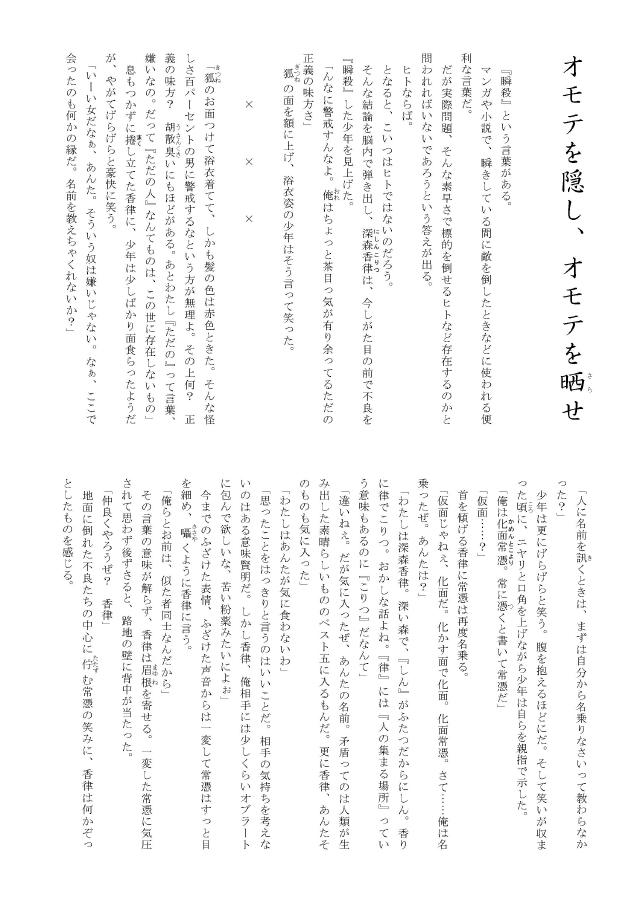 オモテを隠し、オモテを晒せ
『瞬殺』という言葉がある。
マンガや小説で、瞬きしている間に敵を倒したときなどに使われる便
利な言葉だ。
だが実際問題、そんな素早さで標的を倒せるヒトなど存在するのかと
問われればいないであろうという答えが出る。
ヒトならば。
となると、こいつはヒトではないのだろう。
そんな結論を脳内で弾き出し、深森香律は、今しがた目の前で不良を
『瞬殺』した少年を見上げた。
「んなに警戒すんなよ。俺はちょっと茶目っ気が有り余ってるただの
正義の味方さ」
狐の面を額に上げ、浴衣姿の少年はそう言って笑った。
× × ×
「狐のお面つけて浴衣着てて、しかも髪の色は赤色ときた。そんな怪
しさ百パーセントの男に警戒するなという方が無理よ。その上何？　正
義の味方？　胡散臭いにもほどがある。あとわたし『ただの』って言葉、
嫌いなの。だって『ただの人』なんてものは、この世に存在しないもの」
息もつかずに捲し立てた香律に、少年は少しばかり面食らったようだ
が、やがてげらげらと豪快に笑う。
「いーい女だなぁ、あんた。そういう奴は嫌いじゃない。なぁ、ここで
会ったのも何かの縁だ。名前を教えちゃくれないか？」
「人に名前を訊くときは、まずは自分から名乗りなさいって教わらなか
った？」
少年は更にげらげらと笑う。腹を抱えるほどにだ。そして笑いが収ま
った頃に、ニヤリと口角を上げながら少年は自らを親指で示した。
「俺は化面常憑。常に憑くと書いて常憑だ」
「仮面……？」
首を傾げる香律に常憑は再度名乗る。
「仮面じゃねえ、化面だ。化かす面で化面。化面常憑。さて……俺は名
乗ったぜ。あんたは？」
「わたしは深森香律。深い森で、『しん』がふたつだからにしん。香り
に律でこりつ。おかしな話よね。『律』には『人の集まる場所』ってい
う意味もあるのに『こりつ』だなんて」
「違いねぇ。だが気に入ったぜ、あんたの名前。矛盾ってのは人類が生
み出した素晴らしいもののベスト五に入るもんだ。更に香律、あんたそ
のものも気に入った」
「わたしはあんたが気に食わないわ」
「思ったことをはっきりと言うのはいいことだ。相手の気持ちを考えな
いのはある意味賢明だ。しかし香律、俺相手には少しくらいオブラート
に包んで欲しいな、苦い粉薬みたいによぉ」
今までのふざけた表情、ふざけた声音からは一変して常憑はすっと目
を細め、囁くように香律に言う。
「俺らとお前は、似た者同士なんだから」
その言葉の意味が解らず、香律は眉根を寄せる。一変した常憑に気圧
されて思わず後ずさると、路地の壁に背中が当たった。
「仲良くやろうぜ？　香律」
地面に倒れた不良たちの中心に佇む常憑の笑みに、香律は何かぞっ
としたものを感じる。